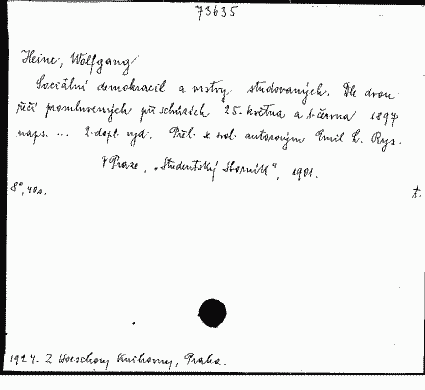 73635
Heine, Wolfgang
Sociální demokracie a vrstvy studovaných. Dle dvou
řečí promluvených při schůzích 25. května a 1. června 1897
naps. ... 2. dopl. vyd. Přel. se svol. autorovým Emil L. Rys.
V Praze, „Studentský Sborník“, 1901.
8°, 40 s. t.
1924. Z Knihovny, Praha.